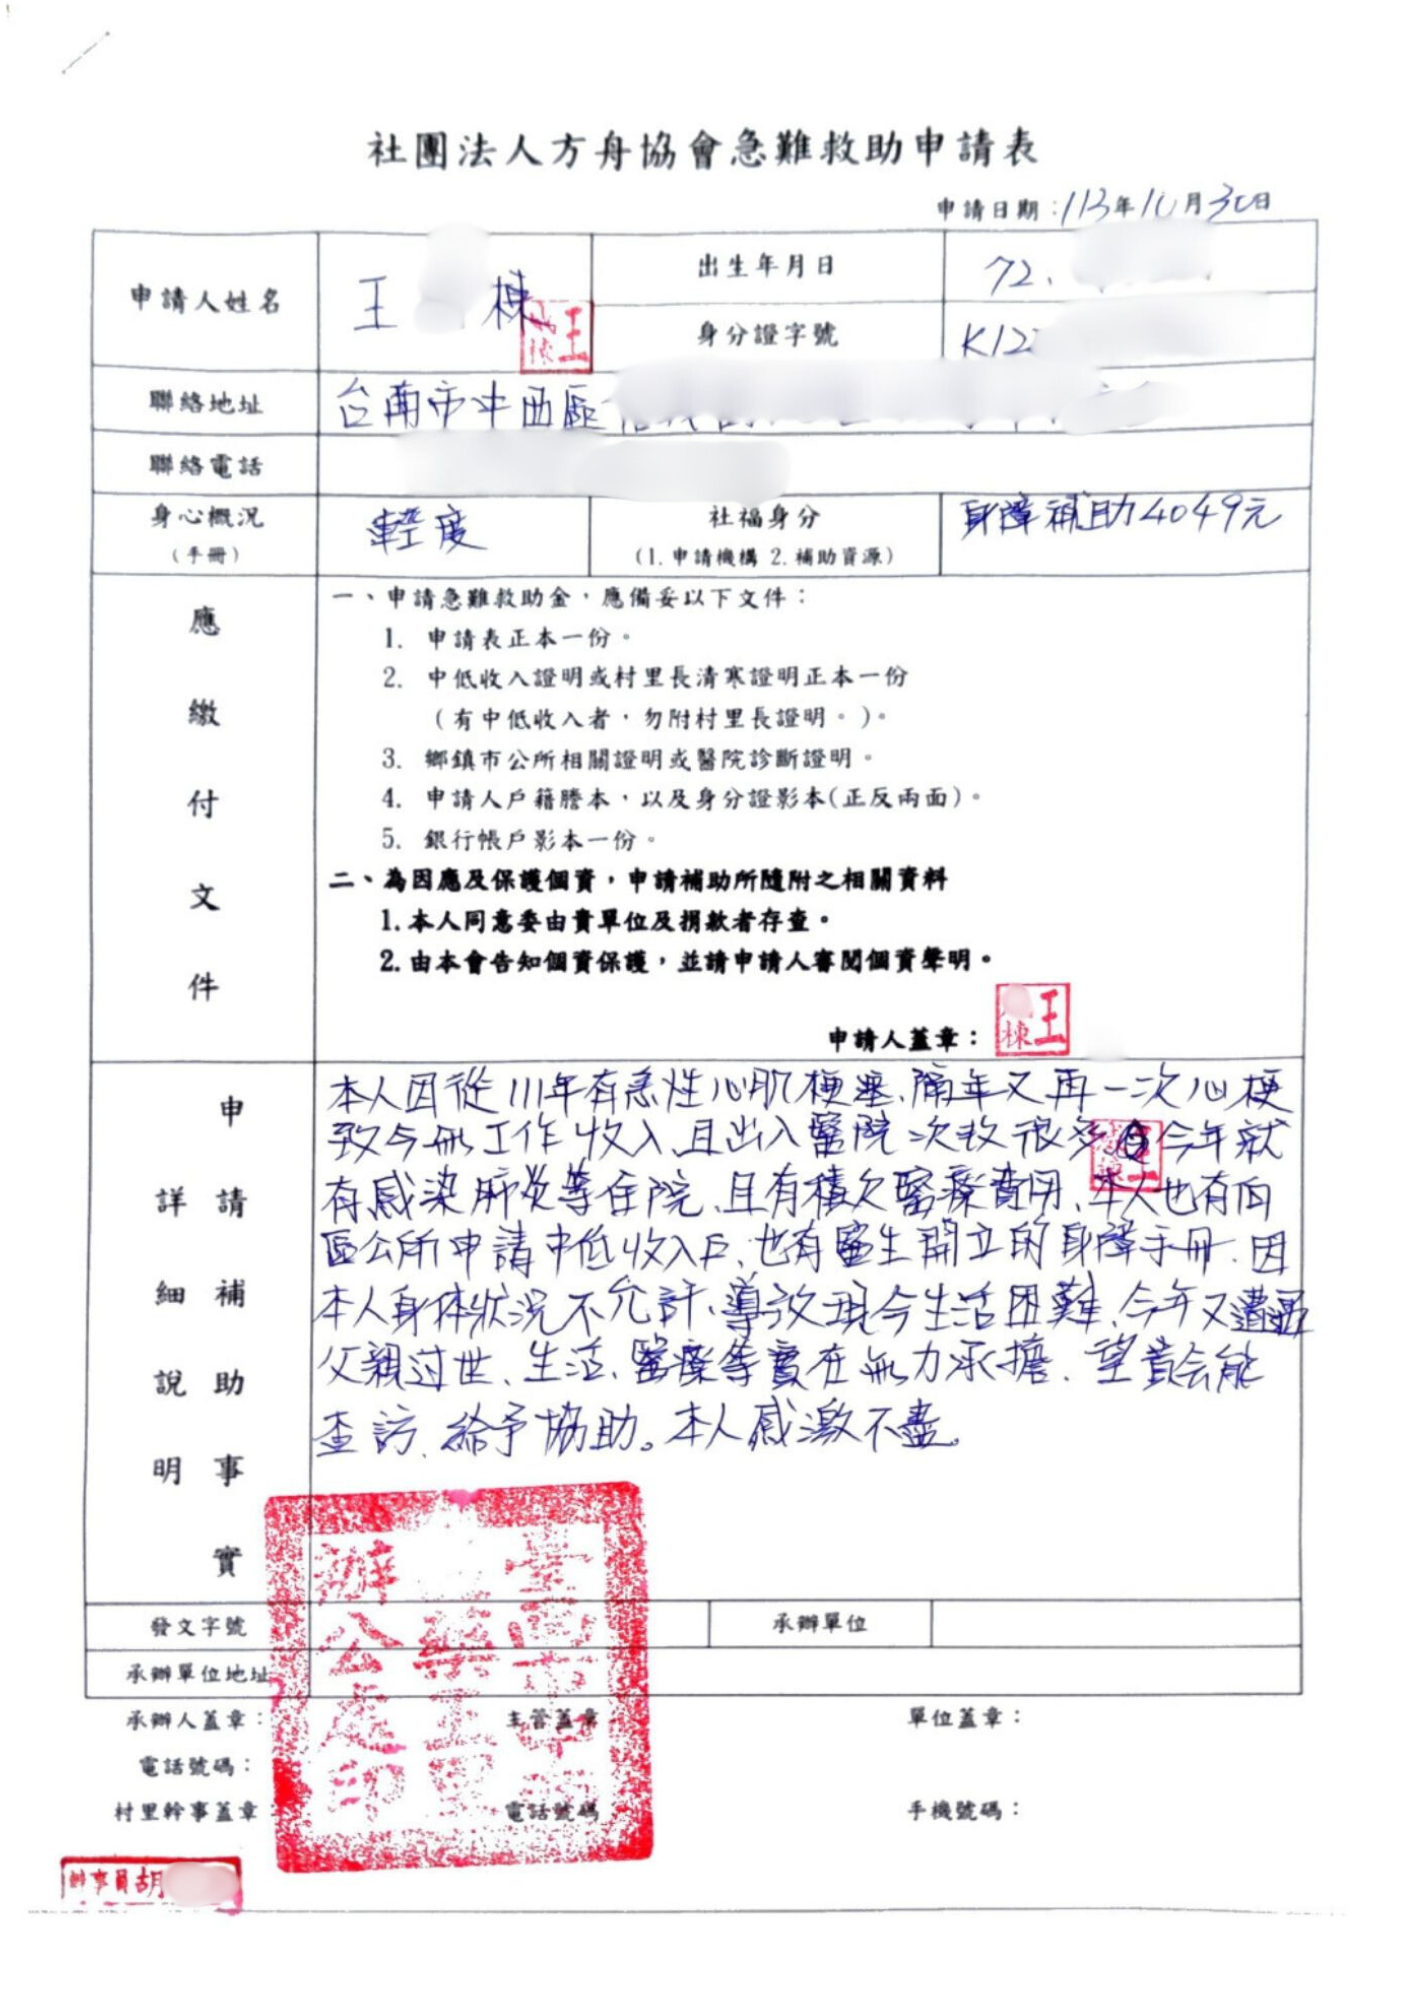 社團法人方舟協會急難救助申請表
申請日期：113年10月30日
申請人姓名 王 棟 出生年月日 72.
身分證字號 K12
聯絡地址 台南市中西區
聯絡電話
身心概況 輕度 社福身分 身障補助4049元
（手冊） （1.申請機構 2.補助資源）
應繳付文件
一、申請急難救助金，應備妥以下文件：
1. 申請表正本一份。
2. 中低收入證明或村里長清寒證明正本一份
（有中低收入者，勿附村里長證明。）。
3. 鄉鎮市公所相關證明或醫院診斷證明。
4. 申請人戶籍謄本，以及身分證影本(正反兩面)。
5. 銀行帳戶影本一份。
二、為因應及保護個資，申請補助所隨附之相關資料
1.本人同意委由貴單位及捐款者存查。
2.由本會告知個資保護，並請申請人審閱個資聲明。
申請人蓋章： 王 棟
申請補助事實
詳細說明
本人因從111年有急性心肌梗塞、隔年又再一次心梗
致今無工作收入、且出入醫院次數很多 今年就
有感染肺炎等住院、且有積欠醫療費用、本人也有向
區公所申請中低收入戶、也有醫生開立的身障手冊、因
本人身体狀況不允許、導致現今生活困難、今年又遭遇
父親过世、生活、醫療等實在無力承擔、望貴会能
查訪、給予協助。本人感激不盡。
發文字號 承辦單位
承辦單位地址
承辦人蓋章： 主管蓋章 單位蓋章：
電話號碼：
村里幹事蓋章 電話號碼 手機號碼：
辦公處印
幹事員胡